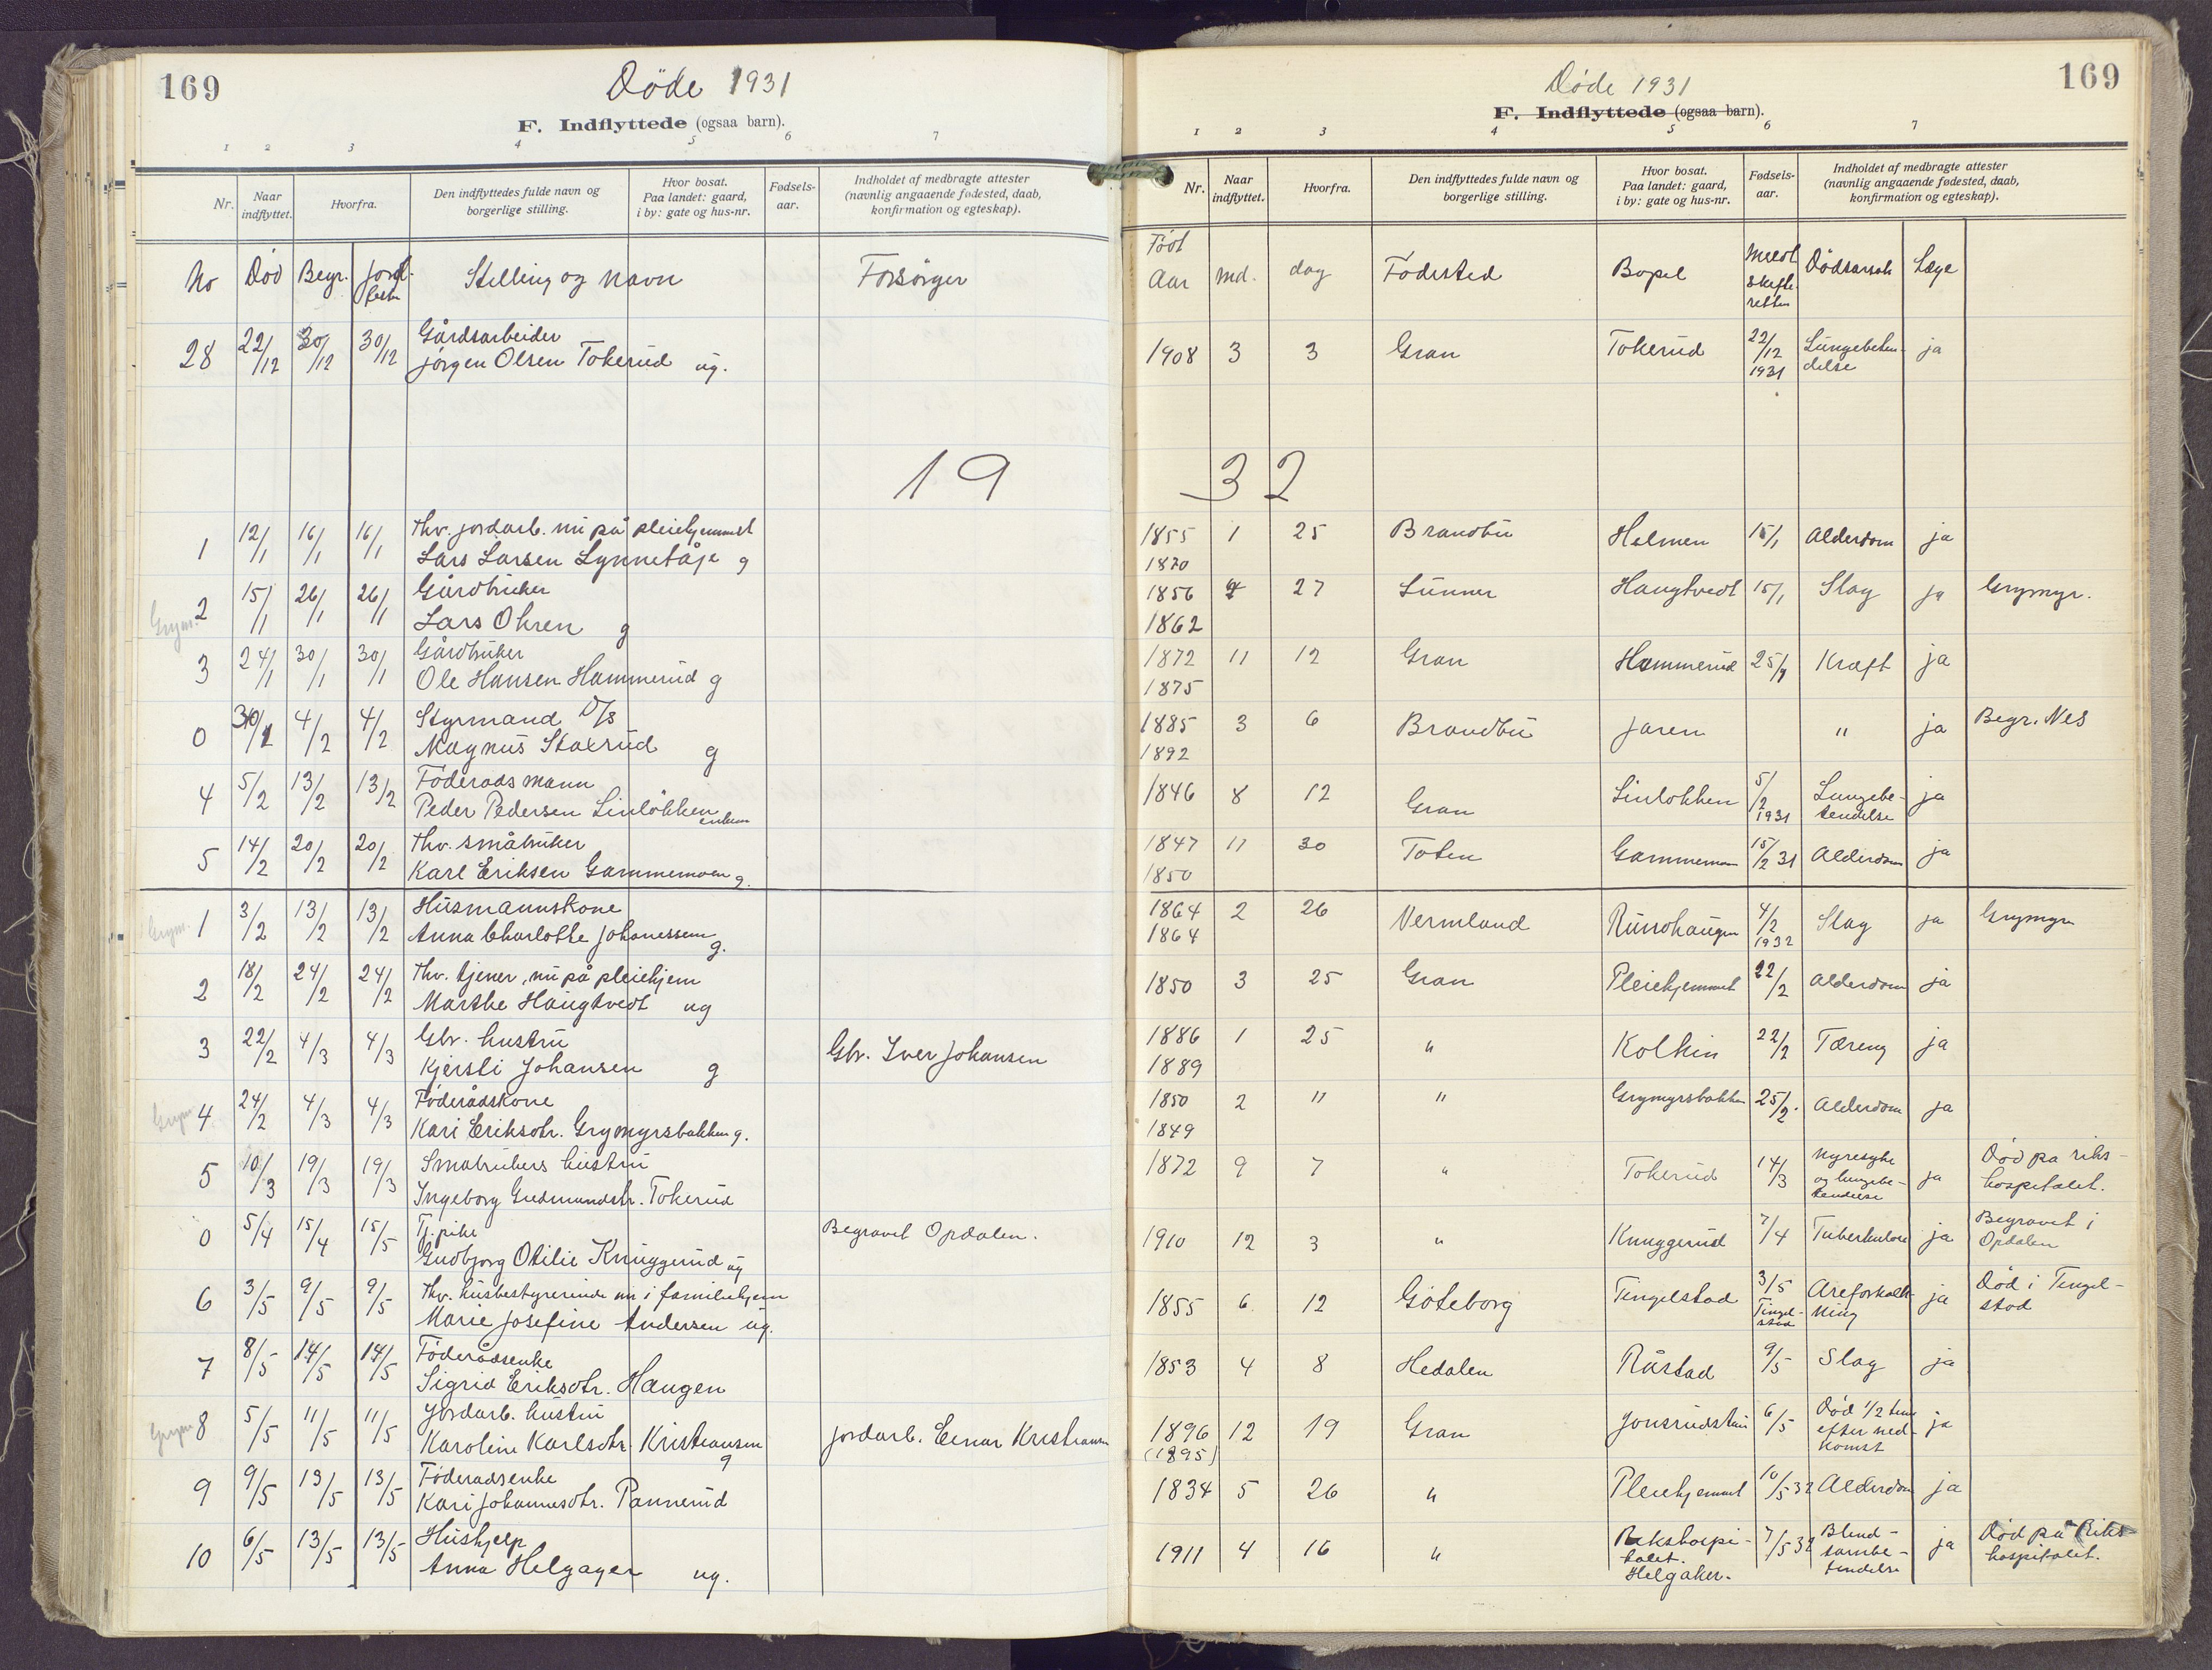 169
Döde 1931
F. Indflyttede (ogsaa barn).
1 2 3 4 5 6 7
Nr. Naar indflyttet. Hvorfra. Den indflyttedes fulde navn og borgerlige stilling. Hvor bosat. Paa landet: gaard, i by: gate og hus-nr. Fødsels-aar. Indholdet af medbragte attester (navnlig angaaende fødested, daab, konfirmation og egteskap).
No Död Begr. Jord-feste Stilling og navn Forsörger
28 22/12 30/12 30/12 Gårdsarbeider
Jörgen Olsen Tokerud ug.
19
1 12/1 16/1 16/1 thv. jordarb. nu på pleiehjemmet
Lars Larsen Lynnebåje g
Grym. 2 15/1 26/1 26/1 Gårdbruker
Lars Ohren g
3 24/1 30/1 30/1 Gårdbruker
Ole Hansen Hammerud g
0 30/1 4/2 4/2 Styrmand D/S
Magnus Staxrud g
4 5/2 13/2 13/2 Föderadsmann
Peder Pedersen Linlökken enkem
5 14/2 20/2 20/2 thv. småbruker
Karl Eriksen Gammemoen g.
Grym. 1 3/2 13/2 13/2 Husmannskone
Anna Charlotte Johanessen g.
2 18/2 24/2 24/2 thv. tjener, nu på pleiehjem
Marthe Haugtvedt ug
3 22/2 4/3 4/3 Gbr. hustru
Kjersti Johansen g Gbr. Iver Johansen
Grym 4 24/2 4/3 4/3 Föderådskone
Kari Eriksdtr. Grymyrsbakken g.
5 10/3 19/3 19/3 Småbrukers hustru
Ingeborg Gudmundstr. Tokerud
0 5/4 15/4 15/5 Tj. pike Begravet Opdalen.
Gudbjorg Otilie Knuggerud ug
6 3/5 9/5 9/5 thv. husbestyrerinde nu i familiehjem
Marie Josefine Andersen ug.
7 8/5 14/5 14/5 Föderådsenke
Sigrid Eriksdtr. Haugen
Grym 8 5/5 11/5 11/5 Jordarb. hustru
Karoline Karlsdtr. Kristiansen g jordarb. Einar Kristiansen
9 9/5 13/5 13/5 Föderadsenke
Kari Johannesdtr. Pannerud
10 6/5 13/5 13/5 Hushjelp
Anna Helgager ug.
169
Döde 1931
F. Indflyttede (ogsaa barn).
1 2 3 4 5 6 7
Nr. Naar indflyttet. Hvorfra. Den indflyttedes fulde navn og borgerlige stilling. Hvor bosat. Paa landet: gaard, i by: gate og hus-nr. Fødsels-aar. Indholdet af medbragte attester (navnlig angaaende fødested, daab, konfirmation og egteskap).
Födt
Aar md. dag Födested Bopel Meldt skifteretten Dödsarsak Læge
1908 3 3 Gran Tokerud 22/12 1931 Lungebetendelse ja
32
1855 1 25 Brandbu Helmen 15/1 Alderdom ja
1870
1856 4 27 Lunner Haugtvedt 15/1 Slag ja Grymyr.
1862
1872 11 12 Gran Hammerud 25/1 Kræft ja
1875
1885 3 6 Brandbu Jaren " ja Begr. Nes
1892
1846 8 12 Gran Linlökken 5/2 1931 Lungebetendelse ja
1847 11 30 Toten Gammemoen 15/2 31 Alderdom ja
1850
1864 2 26 Vermland Rundhaugen 4/2 1932 Slag ja Grymyr
1864
1850 3 25 Gran Pleiehjemmet 22/2 Alderdom ja
1886 1 25 " Kolkin 22/2 Tæreng ja
1889
1850 2 11 " Grymyrsbakken 25/2. Alderdom ja
1849
1872 9 7 " Tokerud 14/3 Nyresyke og lungebetendelse ja Död på rikshospitalet.
1910 12 3 " Knuggerud 7/4 Tuberkulose ja Begravet i Opdalen
1855 6 12 Göteborg Tingelstad 3/5 Tingelstad Areforkalkning ja Död i Tingelstad
1853 4 8 Hedalen Råstad 9/5 Slag ja
1896 12 19 Gran Jonsrudstu 6/5 Död 1/2 time efter nedkomst ja
(1895)
1834 5 26 " Pleiehjemmet 10/5 32 Alderdom ja
1911 4 16 " Rikshospitalet. Helgaker. 7/5 32 Blindtarmbetendelse ja Död på Rikshospitalet.